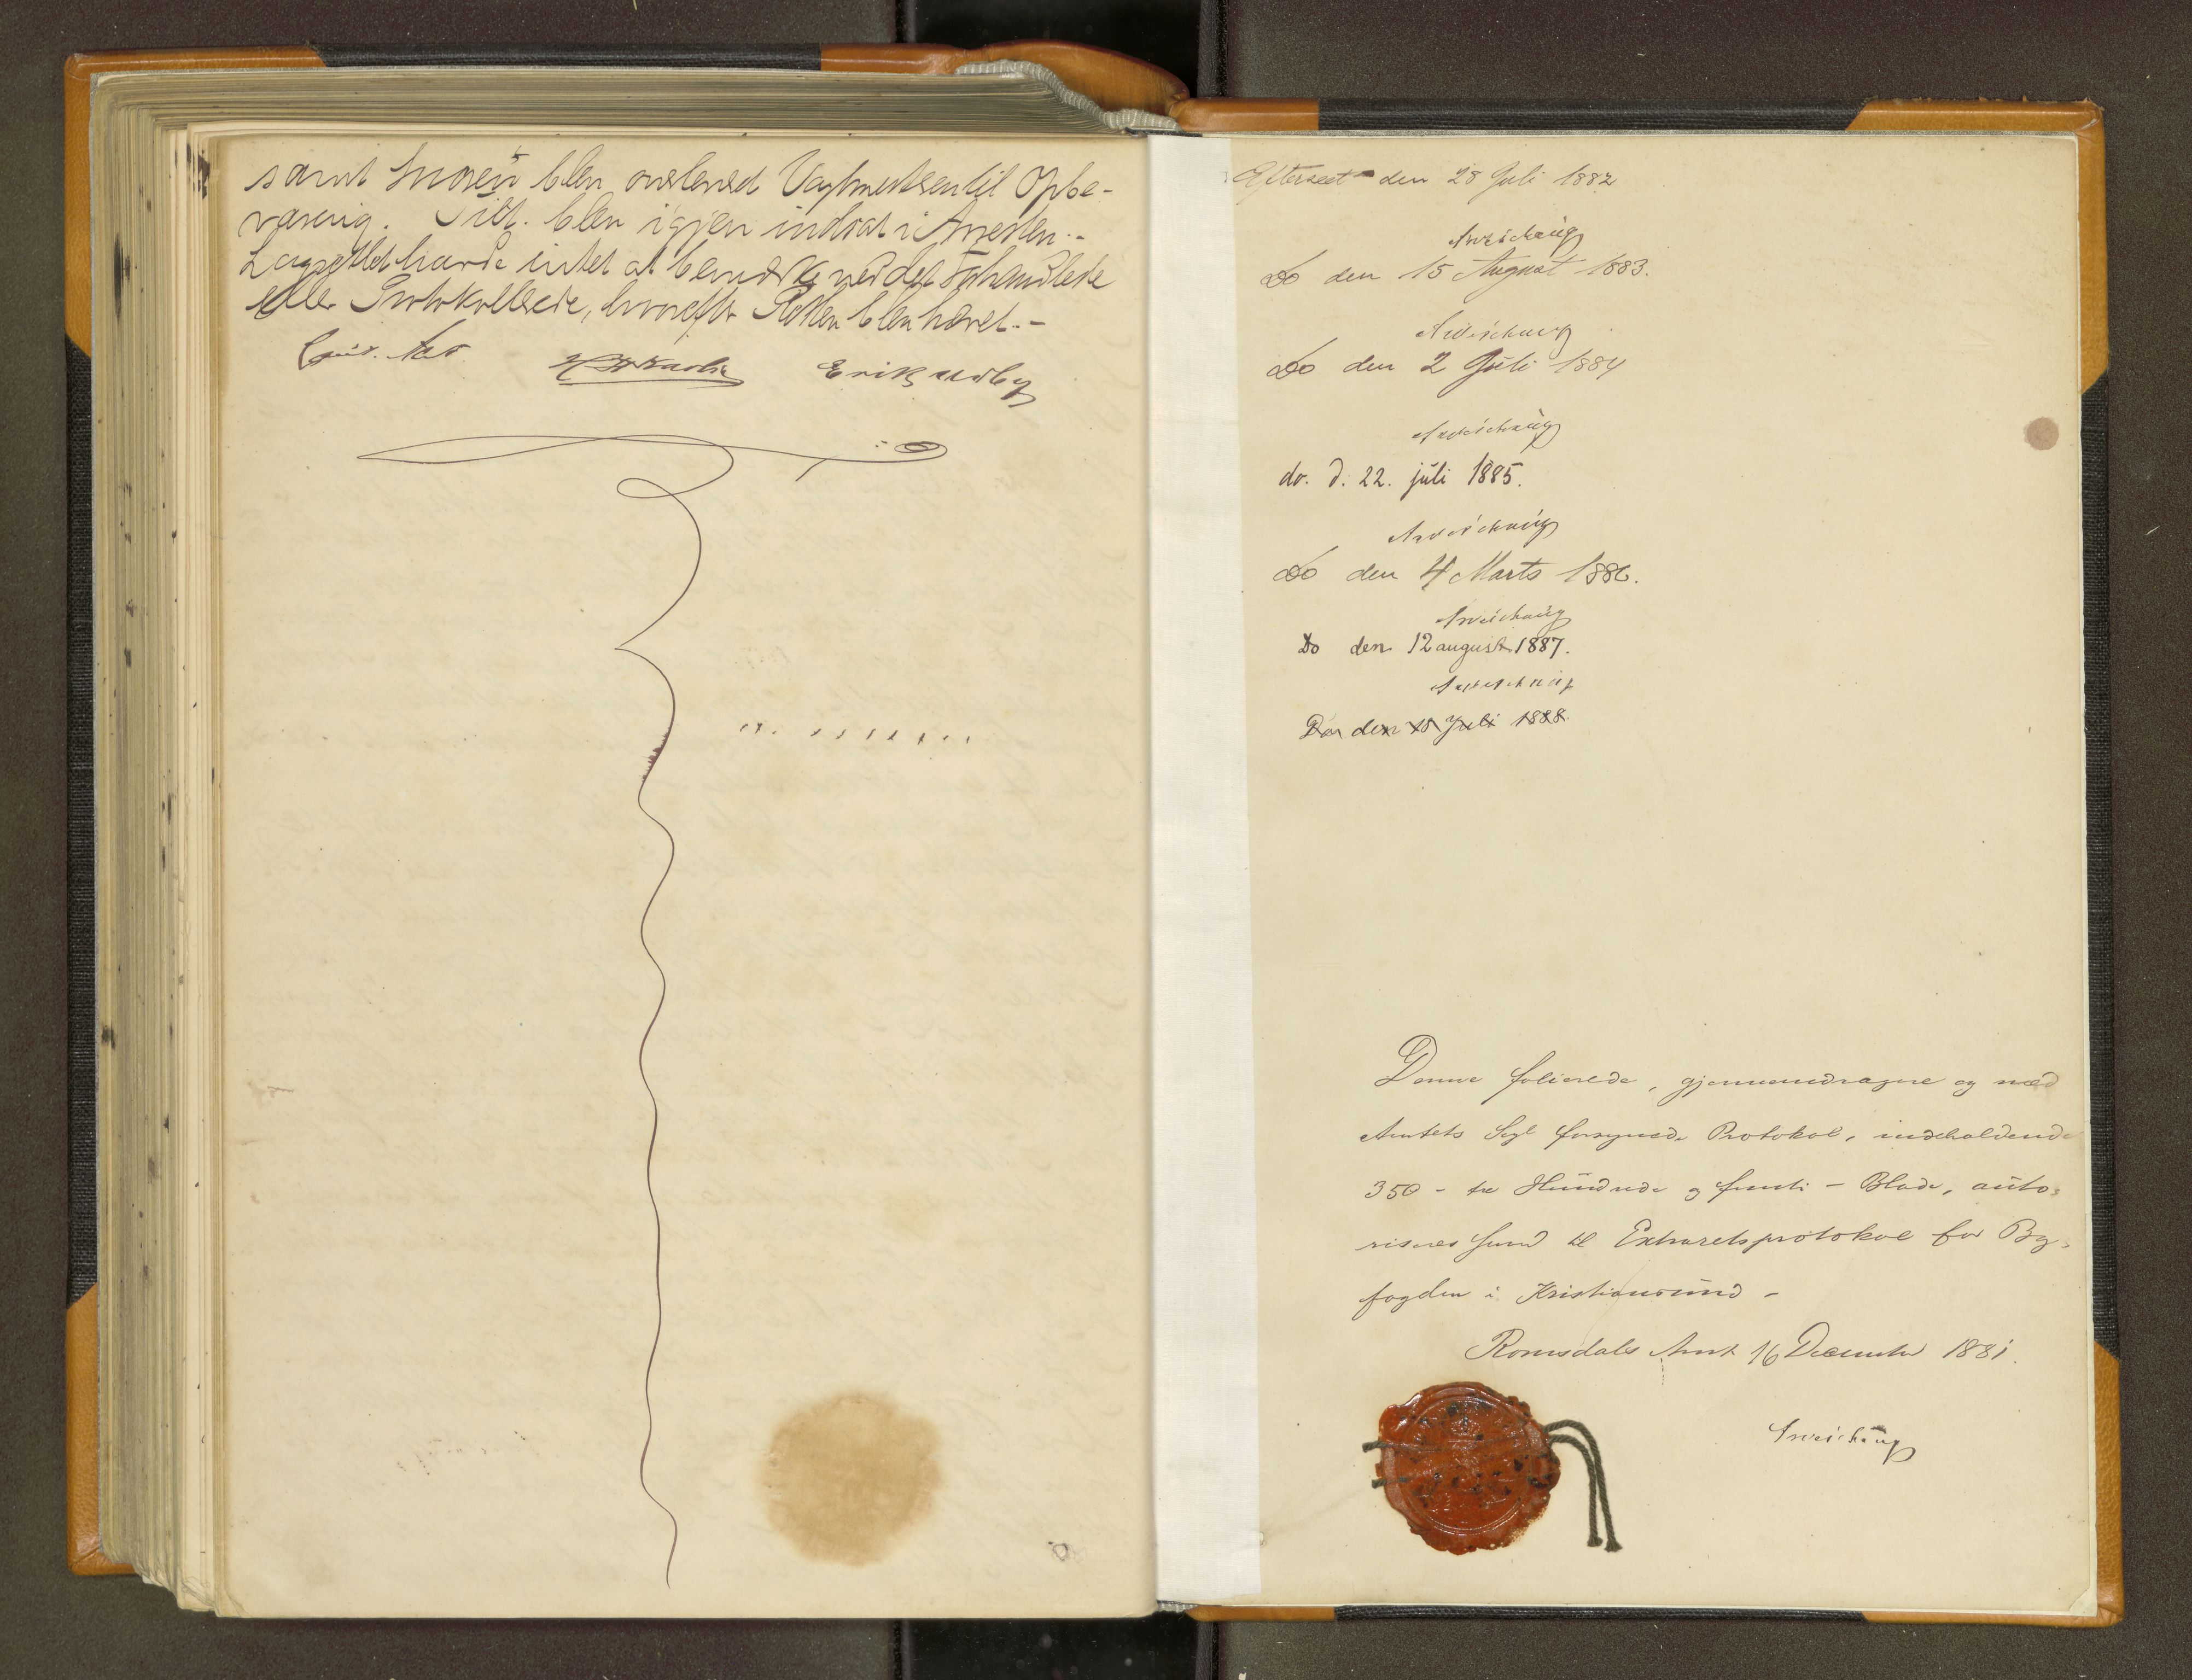 samt Snoren blev overleveret Vagtmesteren til Opbe-
varing. Tilt. blev igjen indsat i Arresten.-
Lagrettet havde intet at bemærke ved det Forhandlede
eller Protokollerede, hvorefter Retten blev hævet.-
Erik Udbye
Efterseet den 28 Juli 1882
Do den 15 August 1883.
Do den 2 Juli 1884
do. d. 22. juli 1885.
Do den 4 Marts 1886.
Do den 12 august 1887.
Do den 18 Juli 1888.
Denne folierede, gjennemdragne og med
Amtets Segl forsynede Protokol, indeholdende
350 - tre Hundrede og femti - Blade, auto-
riseres herved til Extraretsprotokol for By-
fogden i Kristiansund -
Romsdals Amt 16 December 1881.